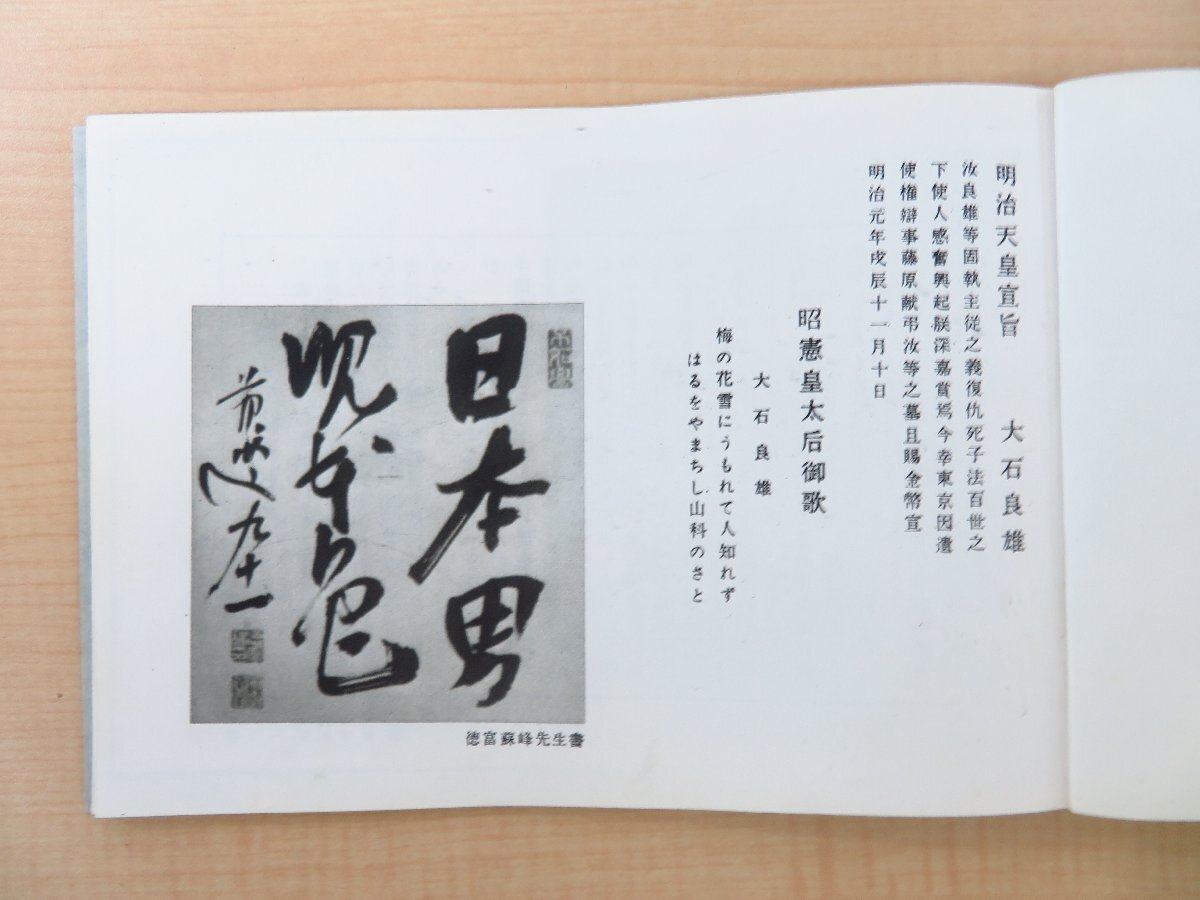 明治天皇宣旨　大石良雄
汝良雄等固執主従之義復仇死子法百世之
下使人感奮興起朕深嘉賞焉今幸東京因遣
使権辯事藤原献弔汝等之墓且賜金幣宣
明治元年戊辰十一月十日
昭憲皇太后御歌
大石良雄
梅の花雪にうもれて人知れず
はるをやまちし山科のさと
日本男
九十一
徳富蘇峰先生書